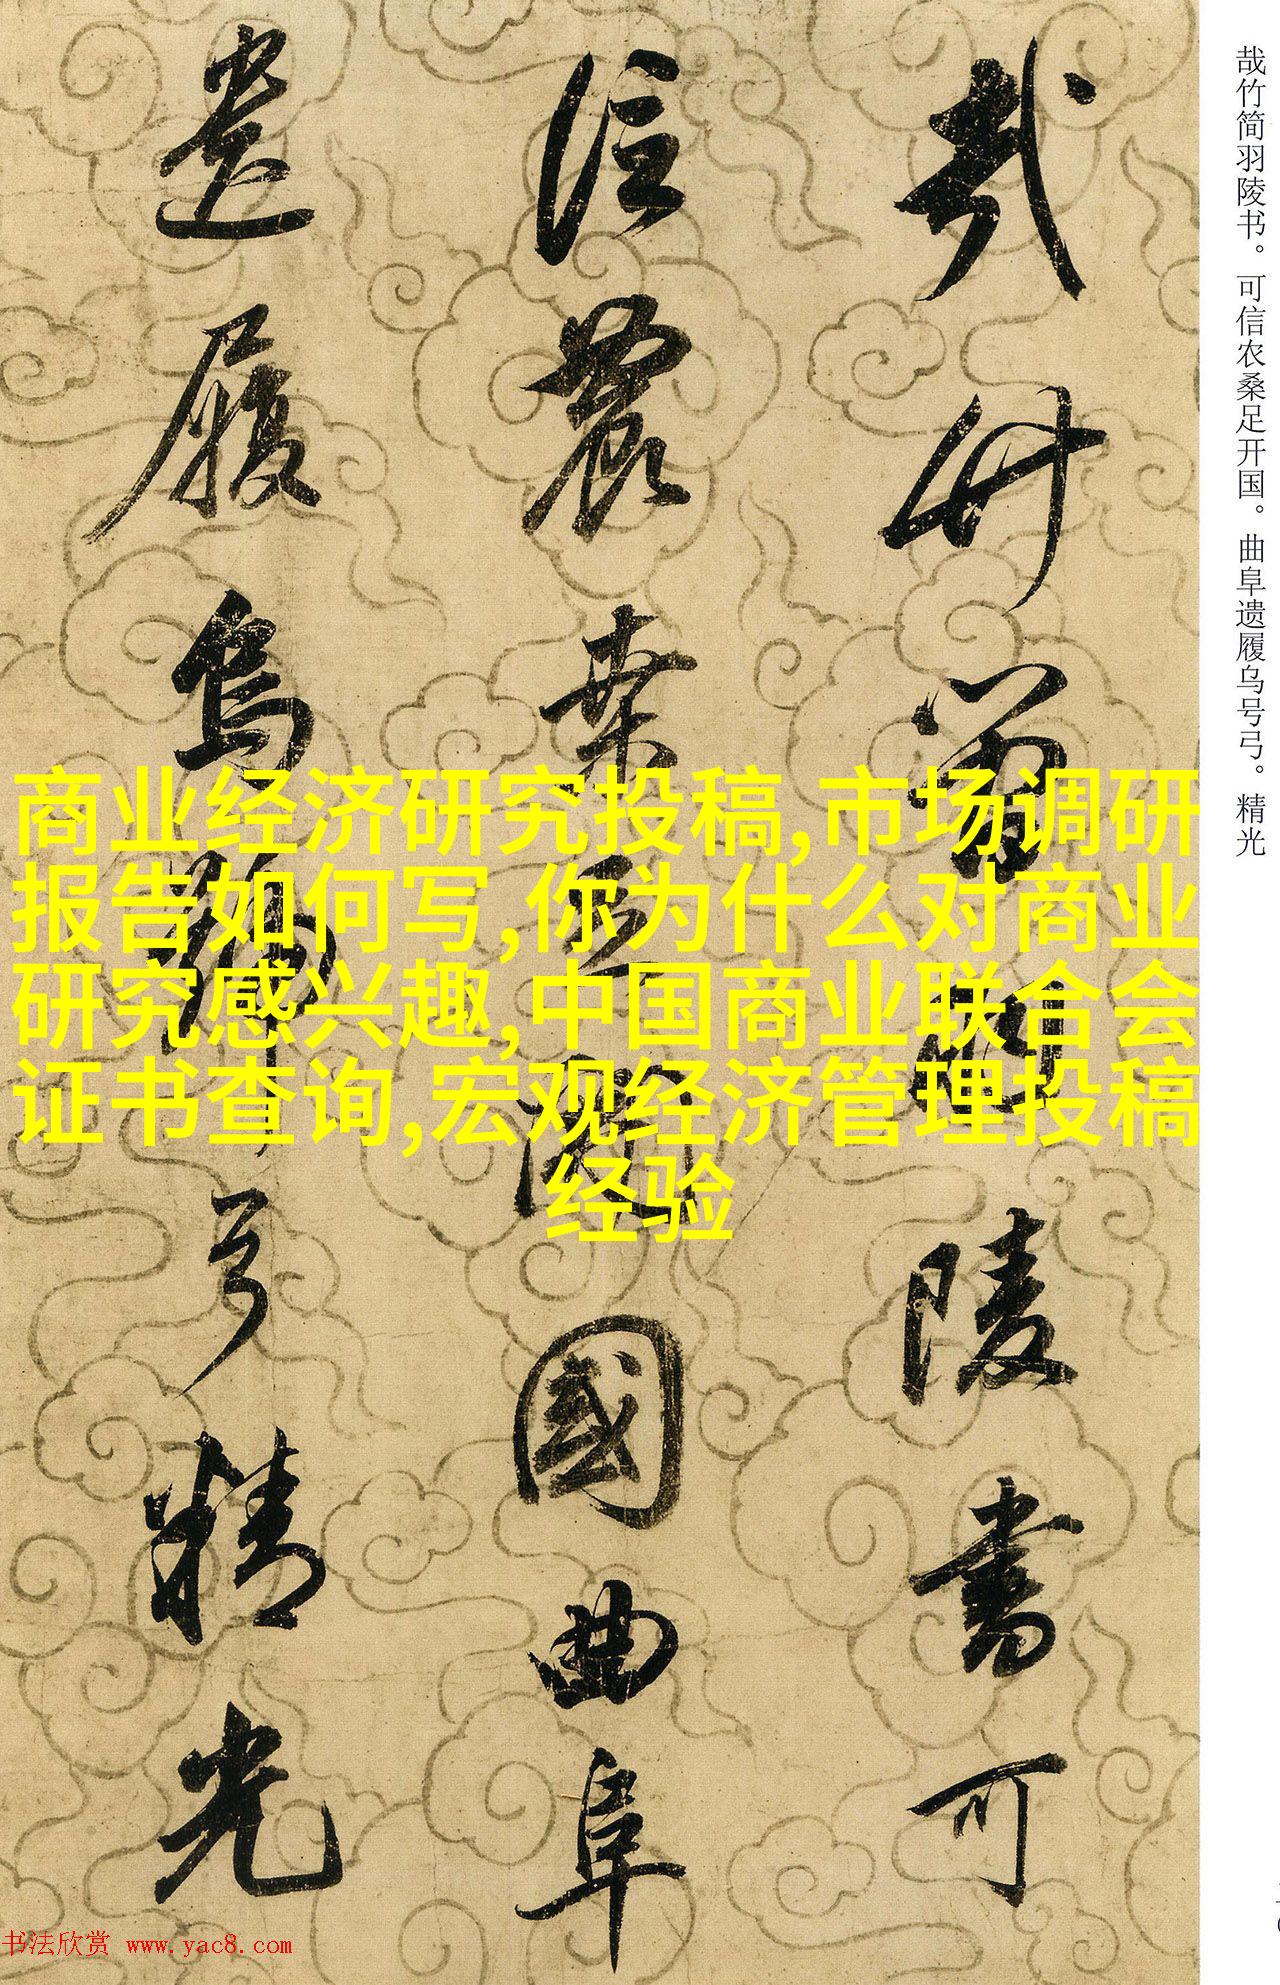 哉竹简羽陵书。可信农桑足开国。曲阜遗履乌号弓。精光
哉竹簡羽陵書可
信農桑足開國曲阜
遺履烏號弓精光
商业经济研究投稿,市场调研
报告如何写,你为什么对商业
研究感兴趣,中国商业联合会
证书查询,宏观经济管理投稿
经验
书法欣赏 www.yac8.com